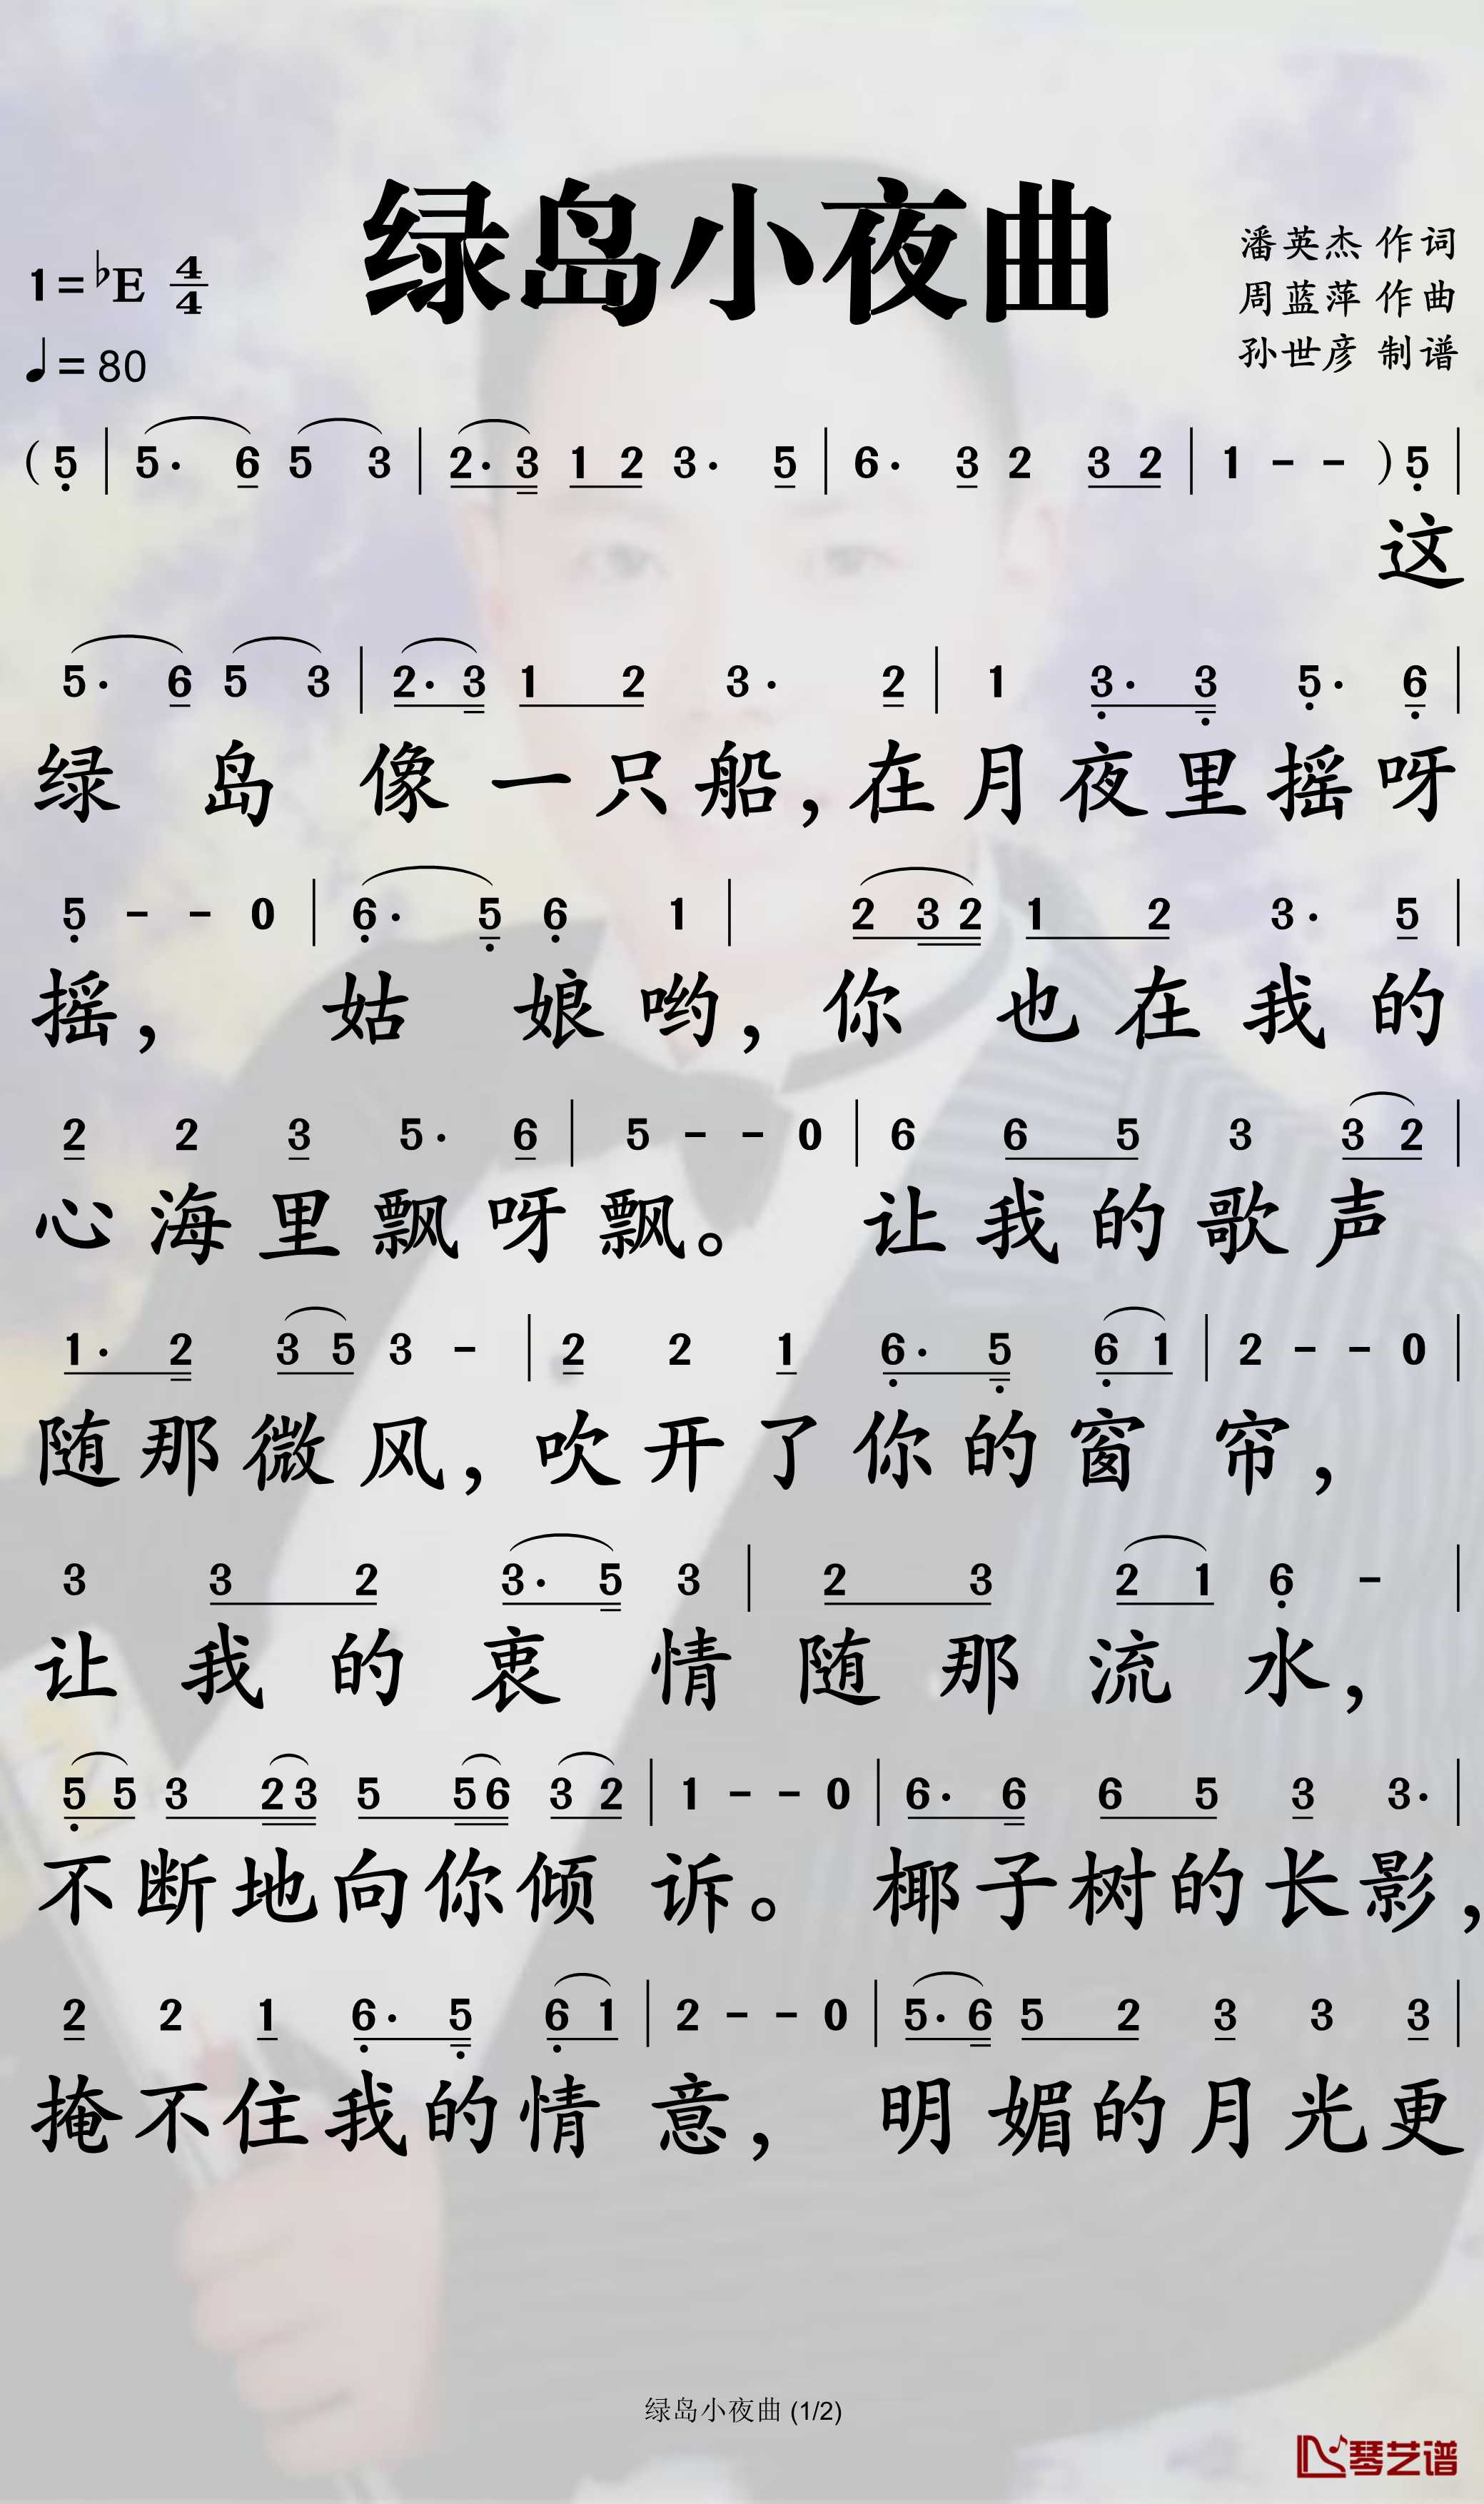 绿岛小夜曲
1=♭E 4/4
♩=80
潘英杰 作词
周蓝萍 作曲
孙世彦 制谱
( 5̣ | 5· 6 5 3 | 2· 3 1 2 3· 5 | 6· 3 2 3 2 | 1 - - ) 5̣ |
这
5· 6 5 3 | 2· 3 1 2 3· 2 | 1 3̣· 3̣ 5̣· 6̣ |
绿岛像一只船,在月夜里摇呀
5̣ - - 0 | 6̣· 5̣ 6̣ 1 | 2 3 2 1 2 3· 5 |
摇,姑娘哟,你也在我的
2 2 3 5· 6 | 5 - - 0 | 6 6 5 3 3 2 |
心海里飘呀飘。让我的歌声
1· 2 3 5 3 - | 2 2 1 6̣· 5̣ 6̣ 1 | 2 - - 0 |
随那微风,吹开了你的窗帘,
3 3 2 3· 5 3 | 2 3 2 1 6̣ - |
让我的衷情随那流水,
5̣ 5 3 2 3 5 5 6 3 2 | 1 - - 0 | 6· 6 6 5 3 3· |
不断地向你倾诉。椰子树的长影,
2 2 1 6̣· 5̣ 6̣ 1 | 2 - - 0 | 5· 6 5 2 3 3 3 |
掩不住我的情意,明媚的月光更
绿岛小夜曲 (1/2)
琴艺谱